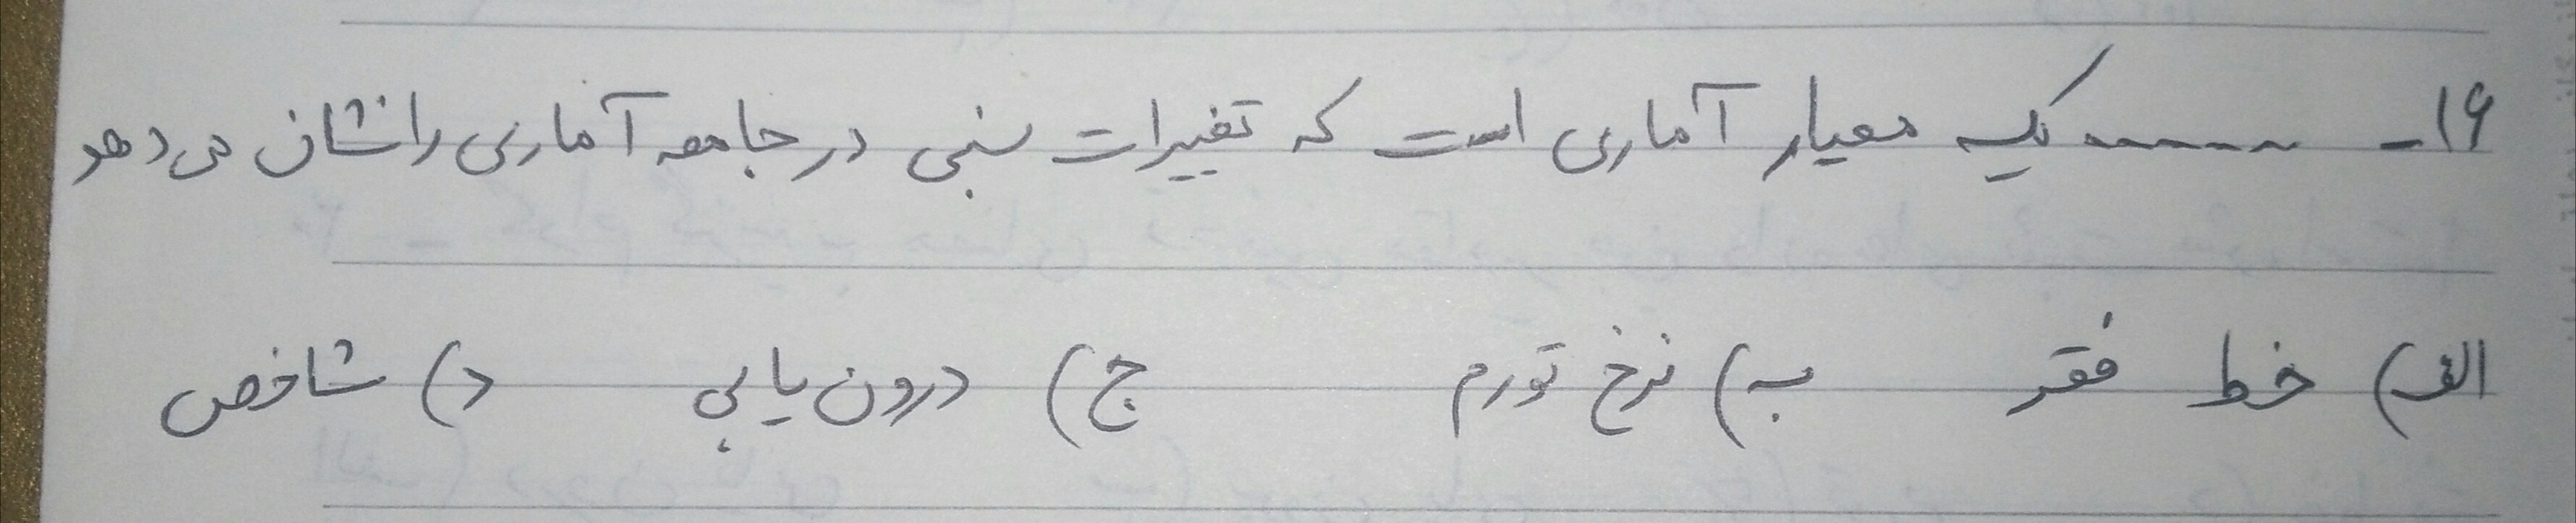 ۱۶- ........ یک معیار آماری است که تغییرات نسبی در جامعه آماری را نشان می دهد
الف) خط فقر ب) نرخ تورم ج) درون یابی د) شاخص